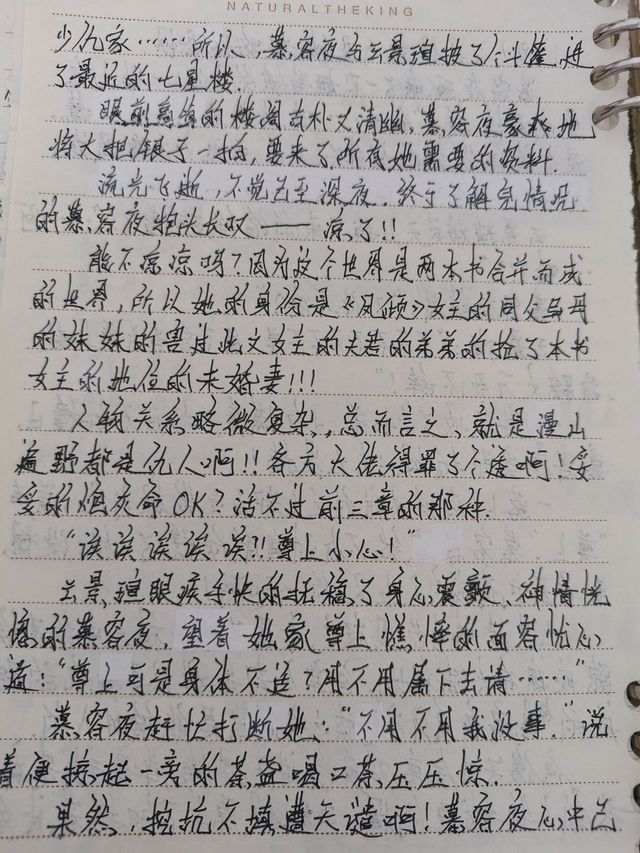 NATURALTHEKING
少仇家……所以，慕容夜与云景瑄披了个斗篷，进
了最近的七星楼.
眼前高耸的楼阁古朴又清幽，慕容夜豪爽地
将大把银子一拍，要来了所有她需要的资料.
流光飞逝，不觉已至深夜.终于了解完情况
的慕容夜抱头长叹——凉了!!
能不凉凉吗？因为这个世界是两本书合并而成
的世界，所以她的身份是《凤倾》女主的同父异母
的妹妹的害过此文女主的夫君的弟弟的抢了本书
女主的地位的未婚妻!!!
人物关系略微复杂，总而言之，就是漫山
遍野都是仇人啊!!各方大佬得罪了个遍啊!妥
妥的炮灰命OK？活不过前三章的那种.
“诶诶诶诶诶?!尊上小心!”
云景瑄眼疾手快的扶稳了身心震颤、神情恍
惚的慕容夜，望着她家尊上憔悴的面容忧心
道：“尊上可是身体不适？用不用属下去请……”
慕容夜赶忙打断她：“不用不用我没事.”说
着便掠起一旁的茶盏喝口茶压压惊.
果然，挖坑不填遭天谴啊!慕容夜心中已